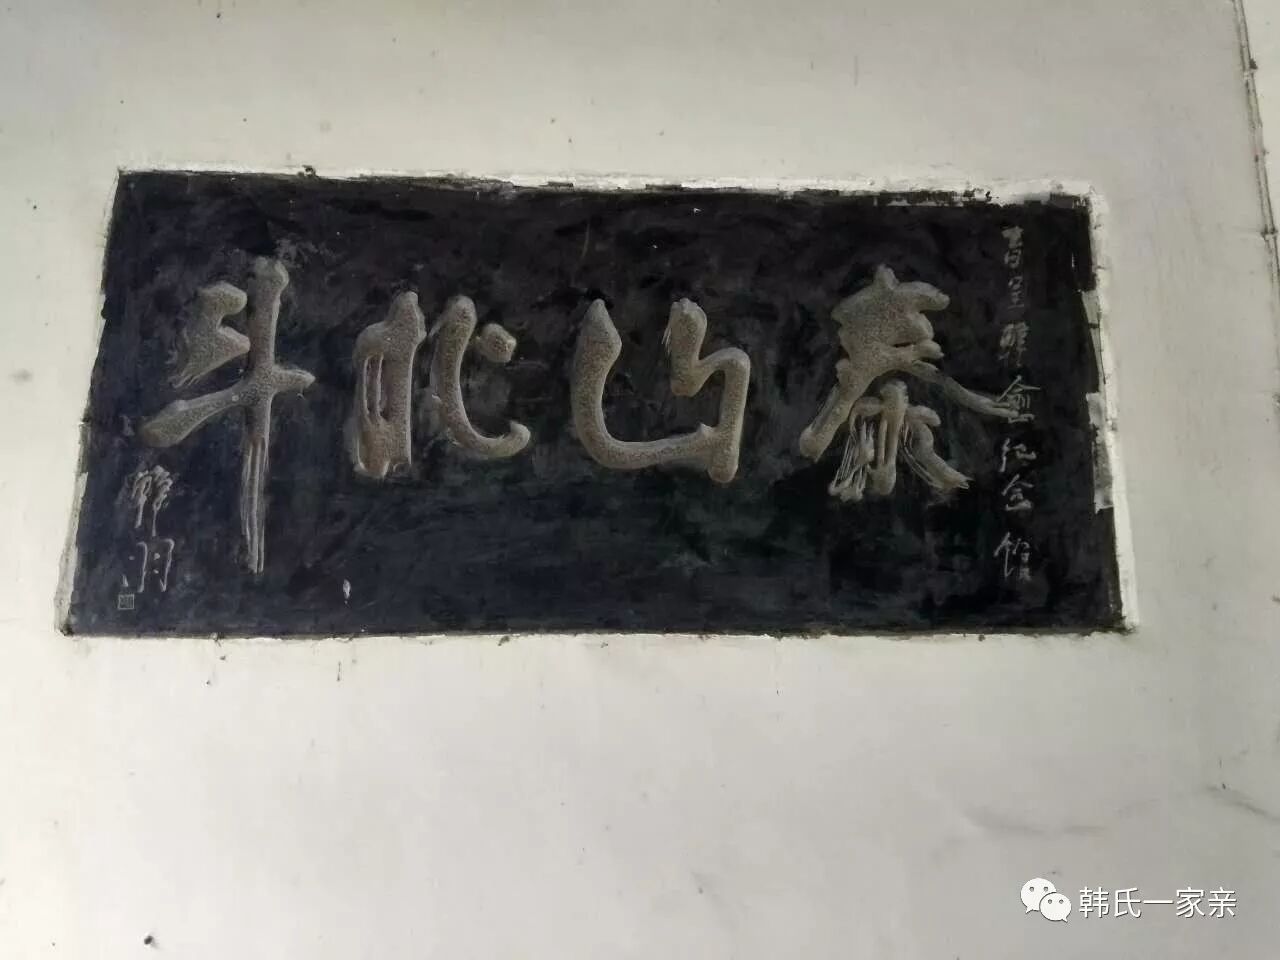 書呈韓愈纪念馆
泰山北斗
韓羽
韩氏一家亲